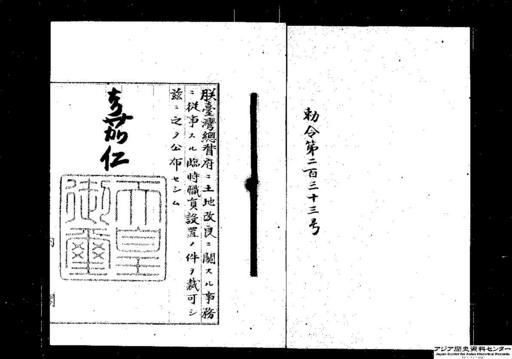 勅令第二百三十三号
朕臺灣總督府ニ土地改良ニ關スル事務
ニ從事スル臨時職員設置ノ件ヲ裁可シ
茲ニ之ヲ公布セシム
嘉仁
天皇
御璽
内 閣
アジア歴史資料センター
Japan Center for Asian Historical Records